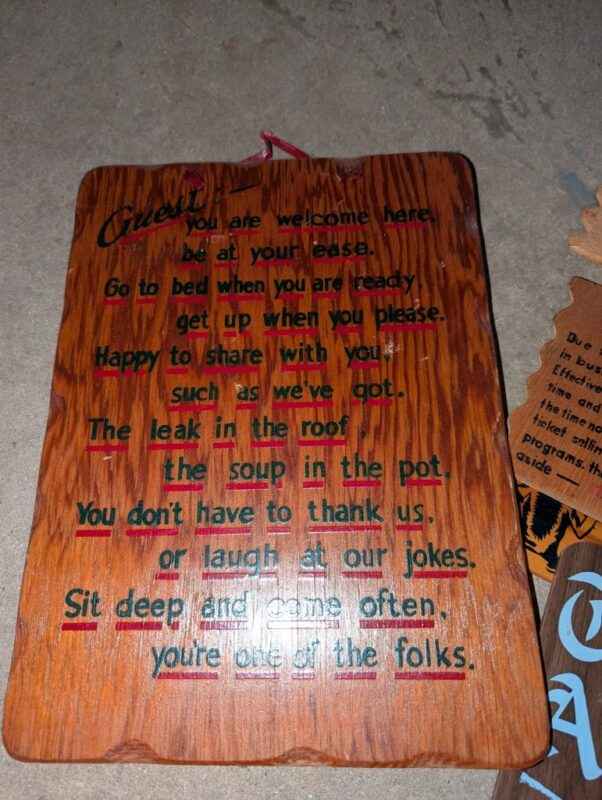 Guest:-
you are welcome here,
be at your ease.
Go to bed when you are ready,
get up when you please.
Happy to share with you,
such as we've got.
The leak in the roof,
the soup in the pot.
You don't have to thank us,
or laugh at our jokes.
Sit deep and come often,
you're one of the folks.
Due
in bus
Effective
time and
the time no
ticket sellin
programs, th
aside —
A